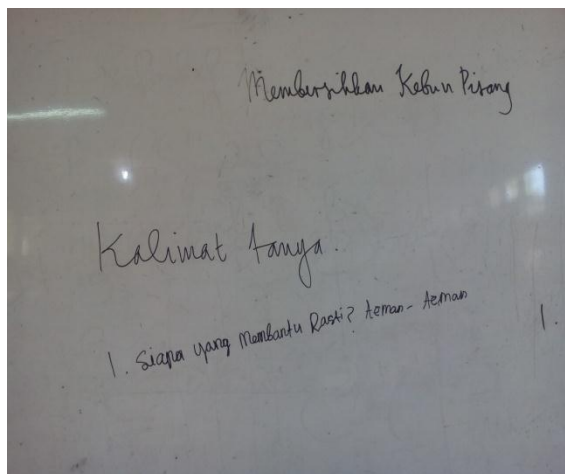 Membersihkan Kebun Pisang
Kalimat tanya.
1. Siapa yang Membantu Rasti? teman-teman
1.